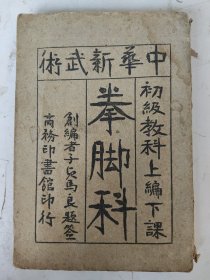 中華新武術
初級教科上編下課
拳脚科
創編者子貞馬良題簽
商務印書館印行